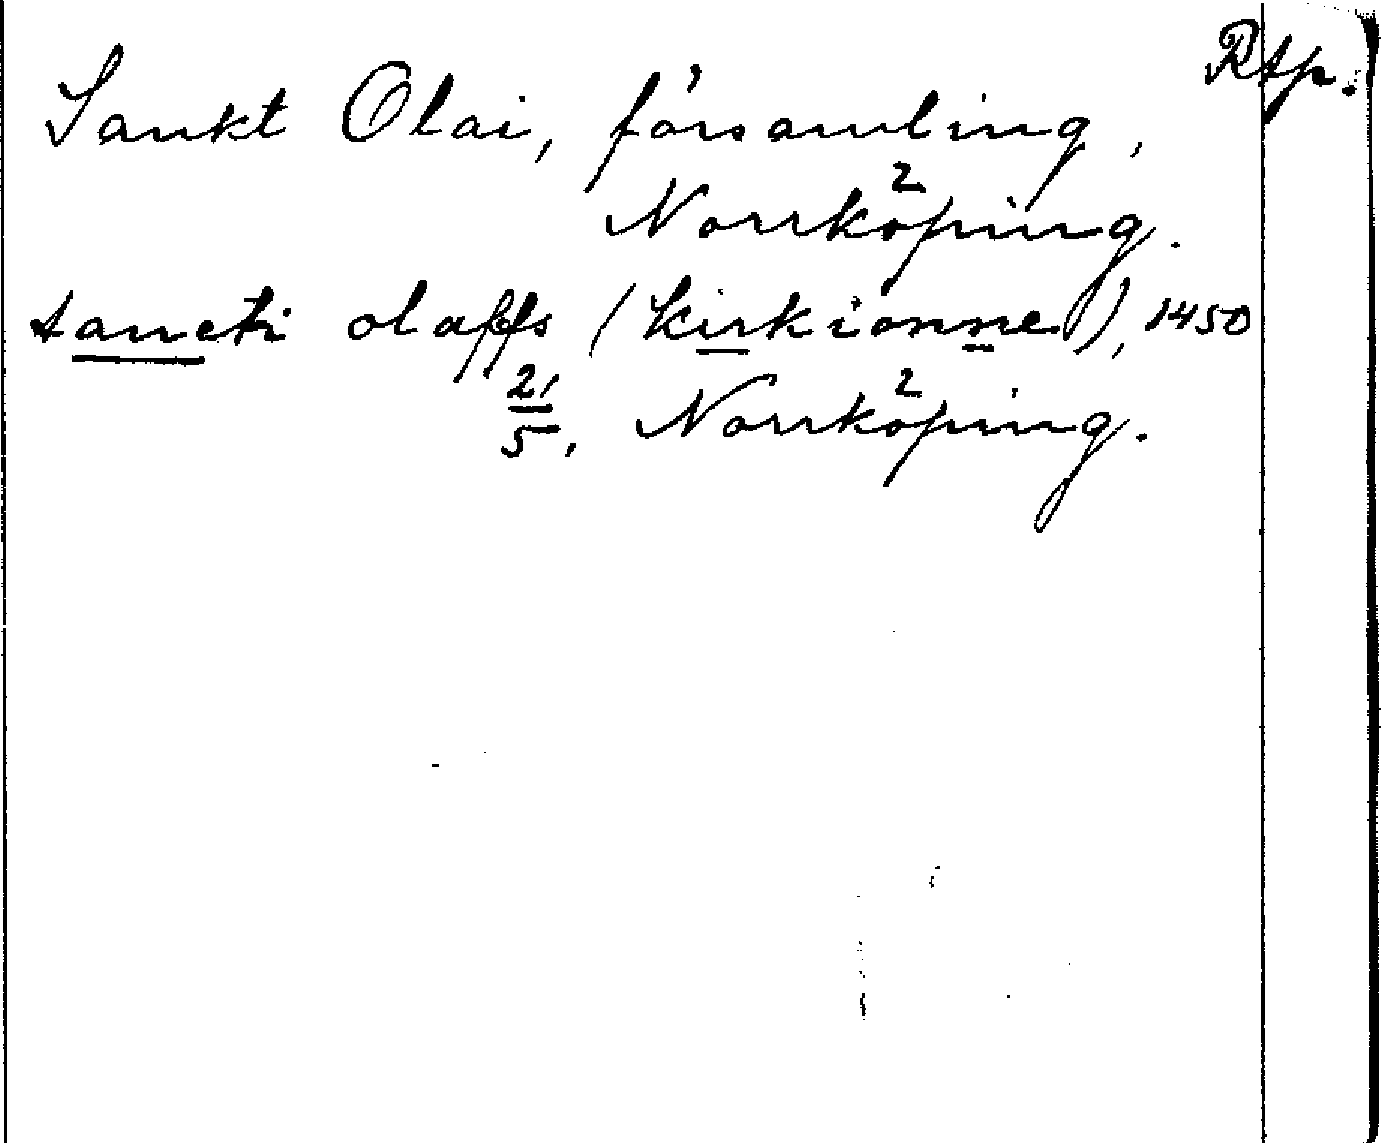 Rtp.
Sankt Olai, församling,
Norrköping.
sancti olaffs (kirkionne), 1450
21/5, Norrköping.